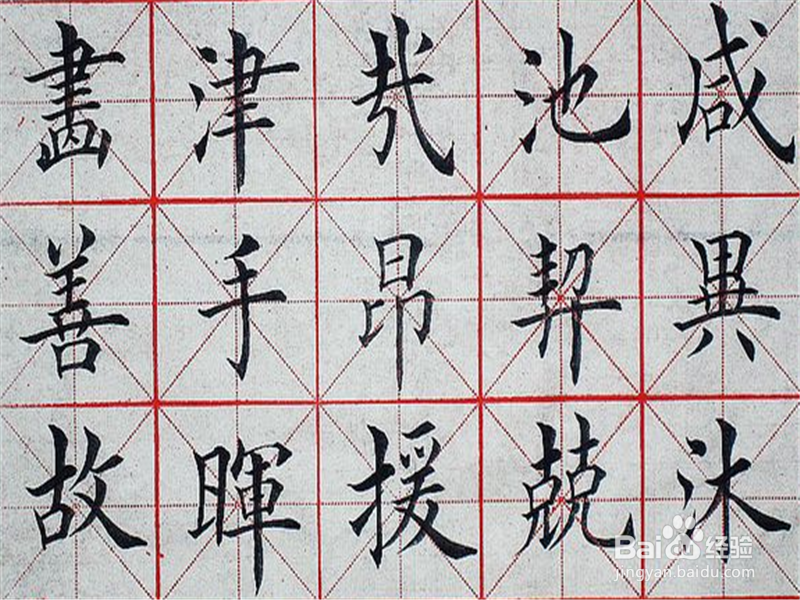 畵 津 池 咸
善 手 昂 異
故 暉 援 兢 沐
Baidu 经验
jingyan.baidu.com